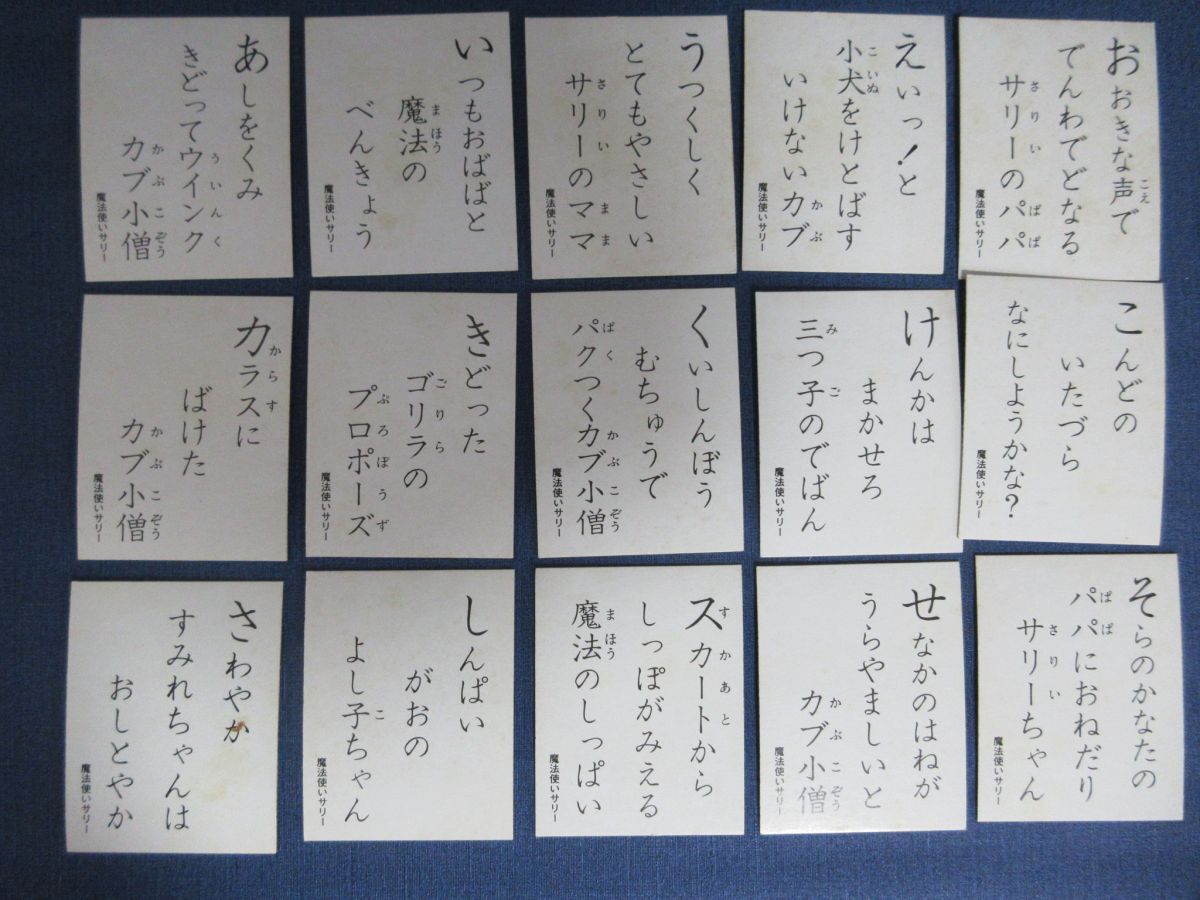 あしをくみ
きどってウインク
ういんく
カブ小僧
かぶこぞう
魔法使いサリー
いつもおばばと
魔法の
まほう
べんきょう
魔法使いサリー
うつくしく
とてもやさしい
サリーのママ
さりい まま
魔法使いサリー
えいっ!と
小犬をけとばす
こいぬ
いけないカブ
かぶ
魔法使いサリー
おおきな声で
こえ
でんわでどなる
サリーのパパ
さりい ぱぱ
魔法使いサリー
カラスに
からす
ばけた
カブ小僧
かぶこぞう
魔法使いサリー
きどった
ゴリラの
ごりら
プロポーズ
ぷろぽうず
魔法使いサリー
くいしんぼう
むちゅうで
パクつくカブ小僧
ぱく かぶこぞう
魔法使いサリー
けんかは
まかせろ
三つ子のでばん
み ご
魔法使いサリー
こんどの
いたづら
なにしようかな?
魔法使いサリー
さわやか
すみれちゃんは
おしとやか
魔法使いサリー
しんぱい
がおの
よし子ちゃん
こ
魔法使いサリー
スカートから
すかあと
しっぽがみえる
魔法のしっぱい
まほう
魔法使いサリー
せなかのはねが
うらやましいと
カブ小僧
かぶこぞう
魔法使いサリー
そらのかなたの
パパにおねだり
ぱぱ
サリーちゃん
さりい
魔法使いサリー